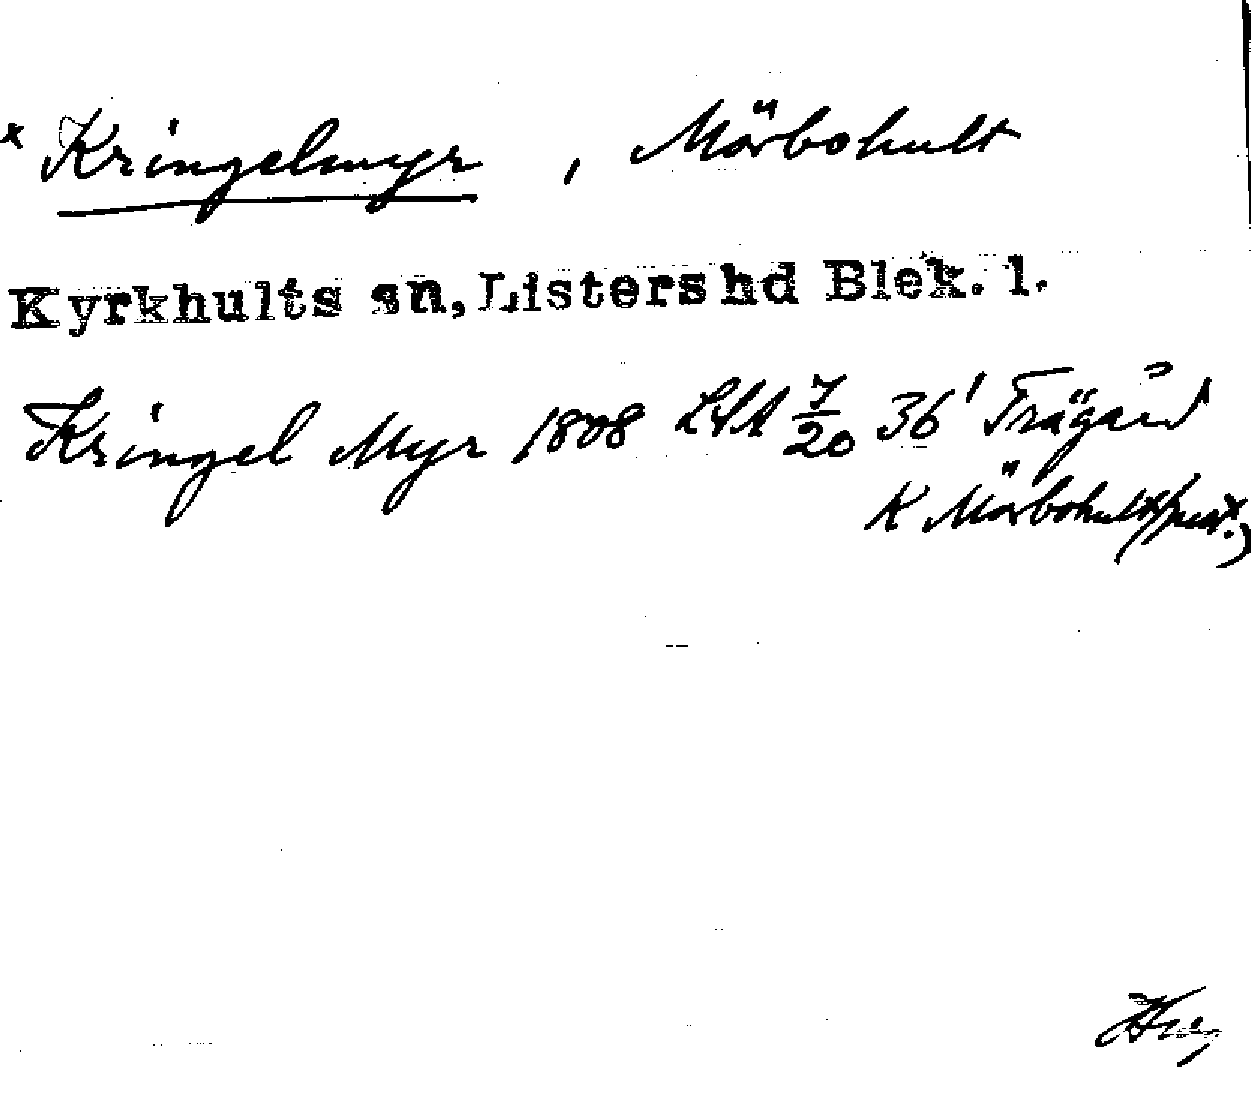 x Kringelmyr, Mörbohult
Kyrkhults sn, Listers hd Blek. l.
Kringel Myr 1808 LSA 7/20 36' Trägård
K Mörbohult